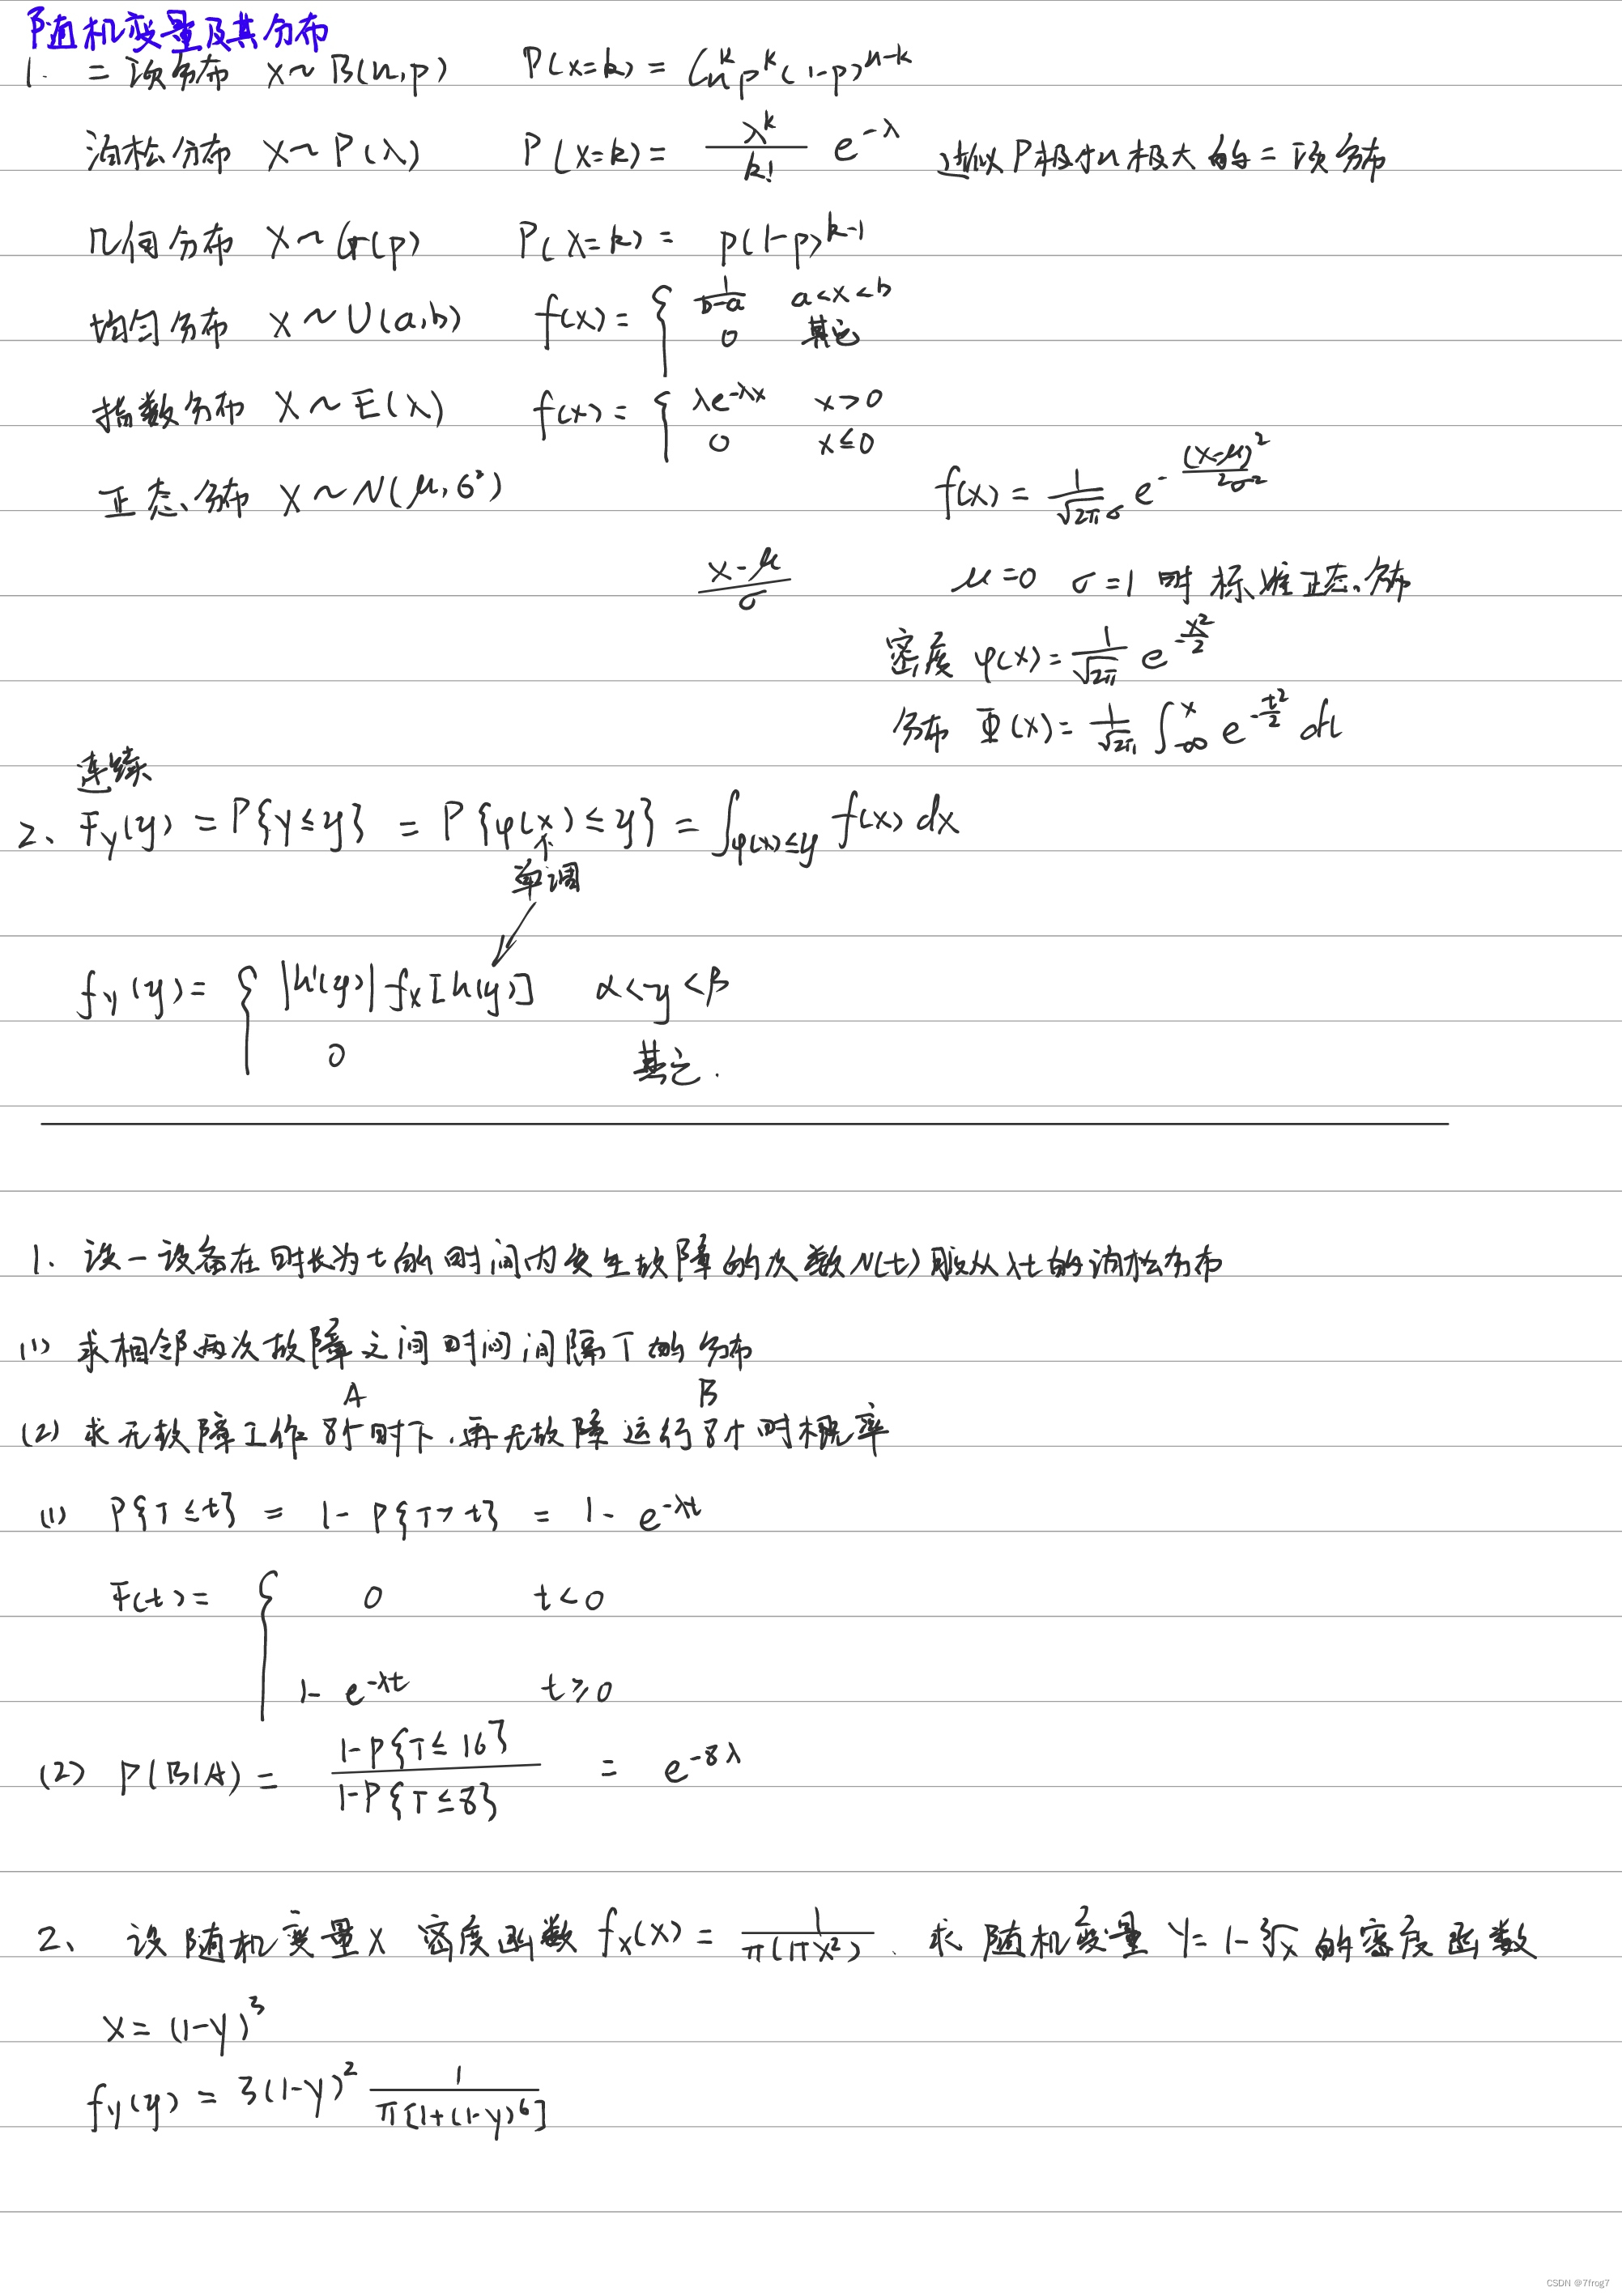 随机变量及其分布
1. 二项分布 X~B(n,p) P(X=k) = C_n^k p^k (1-p)^{n-k}
泊松分布 X~P(λ) P(X=k) = \frac{λ^k}{k!} e^{-λ} 近似P极小n极大的二项分布
几何分布 X~G(p) P(X=k) = p(1-p)^{k-1}
均匀分布 X~U(a,b) f(x) = { \frac{1}{b-a} a<x<b
0 其它
指数分布 X~E(λ) f(x) = { λe^{-λx} x>0
0 x≤0
正态分布 X~N(μ,σ²) f(x) = \frac{1}{\sqrt{2π}σ} e^{-\frac{(x-μ)^2}{2σ^2}}
\frac{x-μ}{σ} μ=0 σ=1 时 标准正态分布
密度 φ(x) = \frac{1}{\sqrt{2π}} e^{-\frac{x^2}{2}}
分布 Φ(x) = \frac{1}{\sqrt{2π}} ∫_{-∞}^{x} e^{-\frac{t^2}{2}} dt
连续
2、F_Y(y) = P{Y≤y} = P{φ(x)≤y} = ∫_{φ(x)≤y} f(x) dx
单调
f_Y(y) = { |h'(y)| f_X[h(y)] α<y<β
0 其它.
1. 设一设备在时长为t的时间内发生故障的次数N(t)服从λt的泊松分布
(1) 求相邻两次故障之间时间间隔T的分布
A B
(2) 求无故障工作8个时下.再无故障运行8个时概率
(1) P{T≤t} = 1-P{T>t} = 1-e^{-λt}
F(t) = { 0 t<0
1-e^{-λt} t≥0
(2) P(B|A) = \frac{1-P{T≤16}}{1-P{T≤8}} = e^{-8λ}
2、设随机变量X 密度函数 f_X(x) = \frac{1}{π(1+x^2)}. 求 随机变量 Y=1-\sqrt[3]{x} 的密度函数
X=(1-Y)^3
f_Y(y) = 3(1-y)^2 \frac{1}{π[1+(1-y)^6]}
CSDN @7frog7